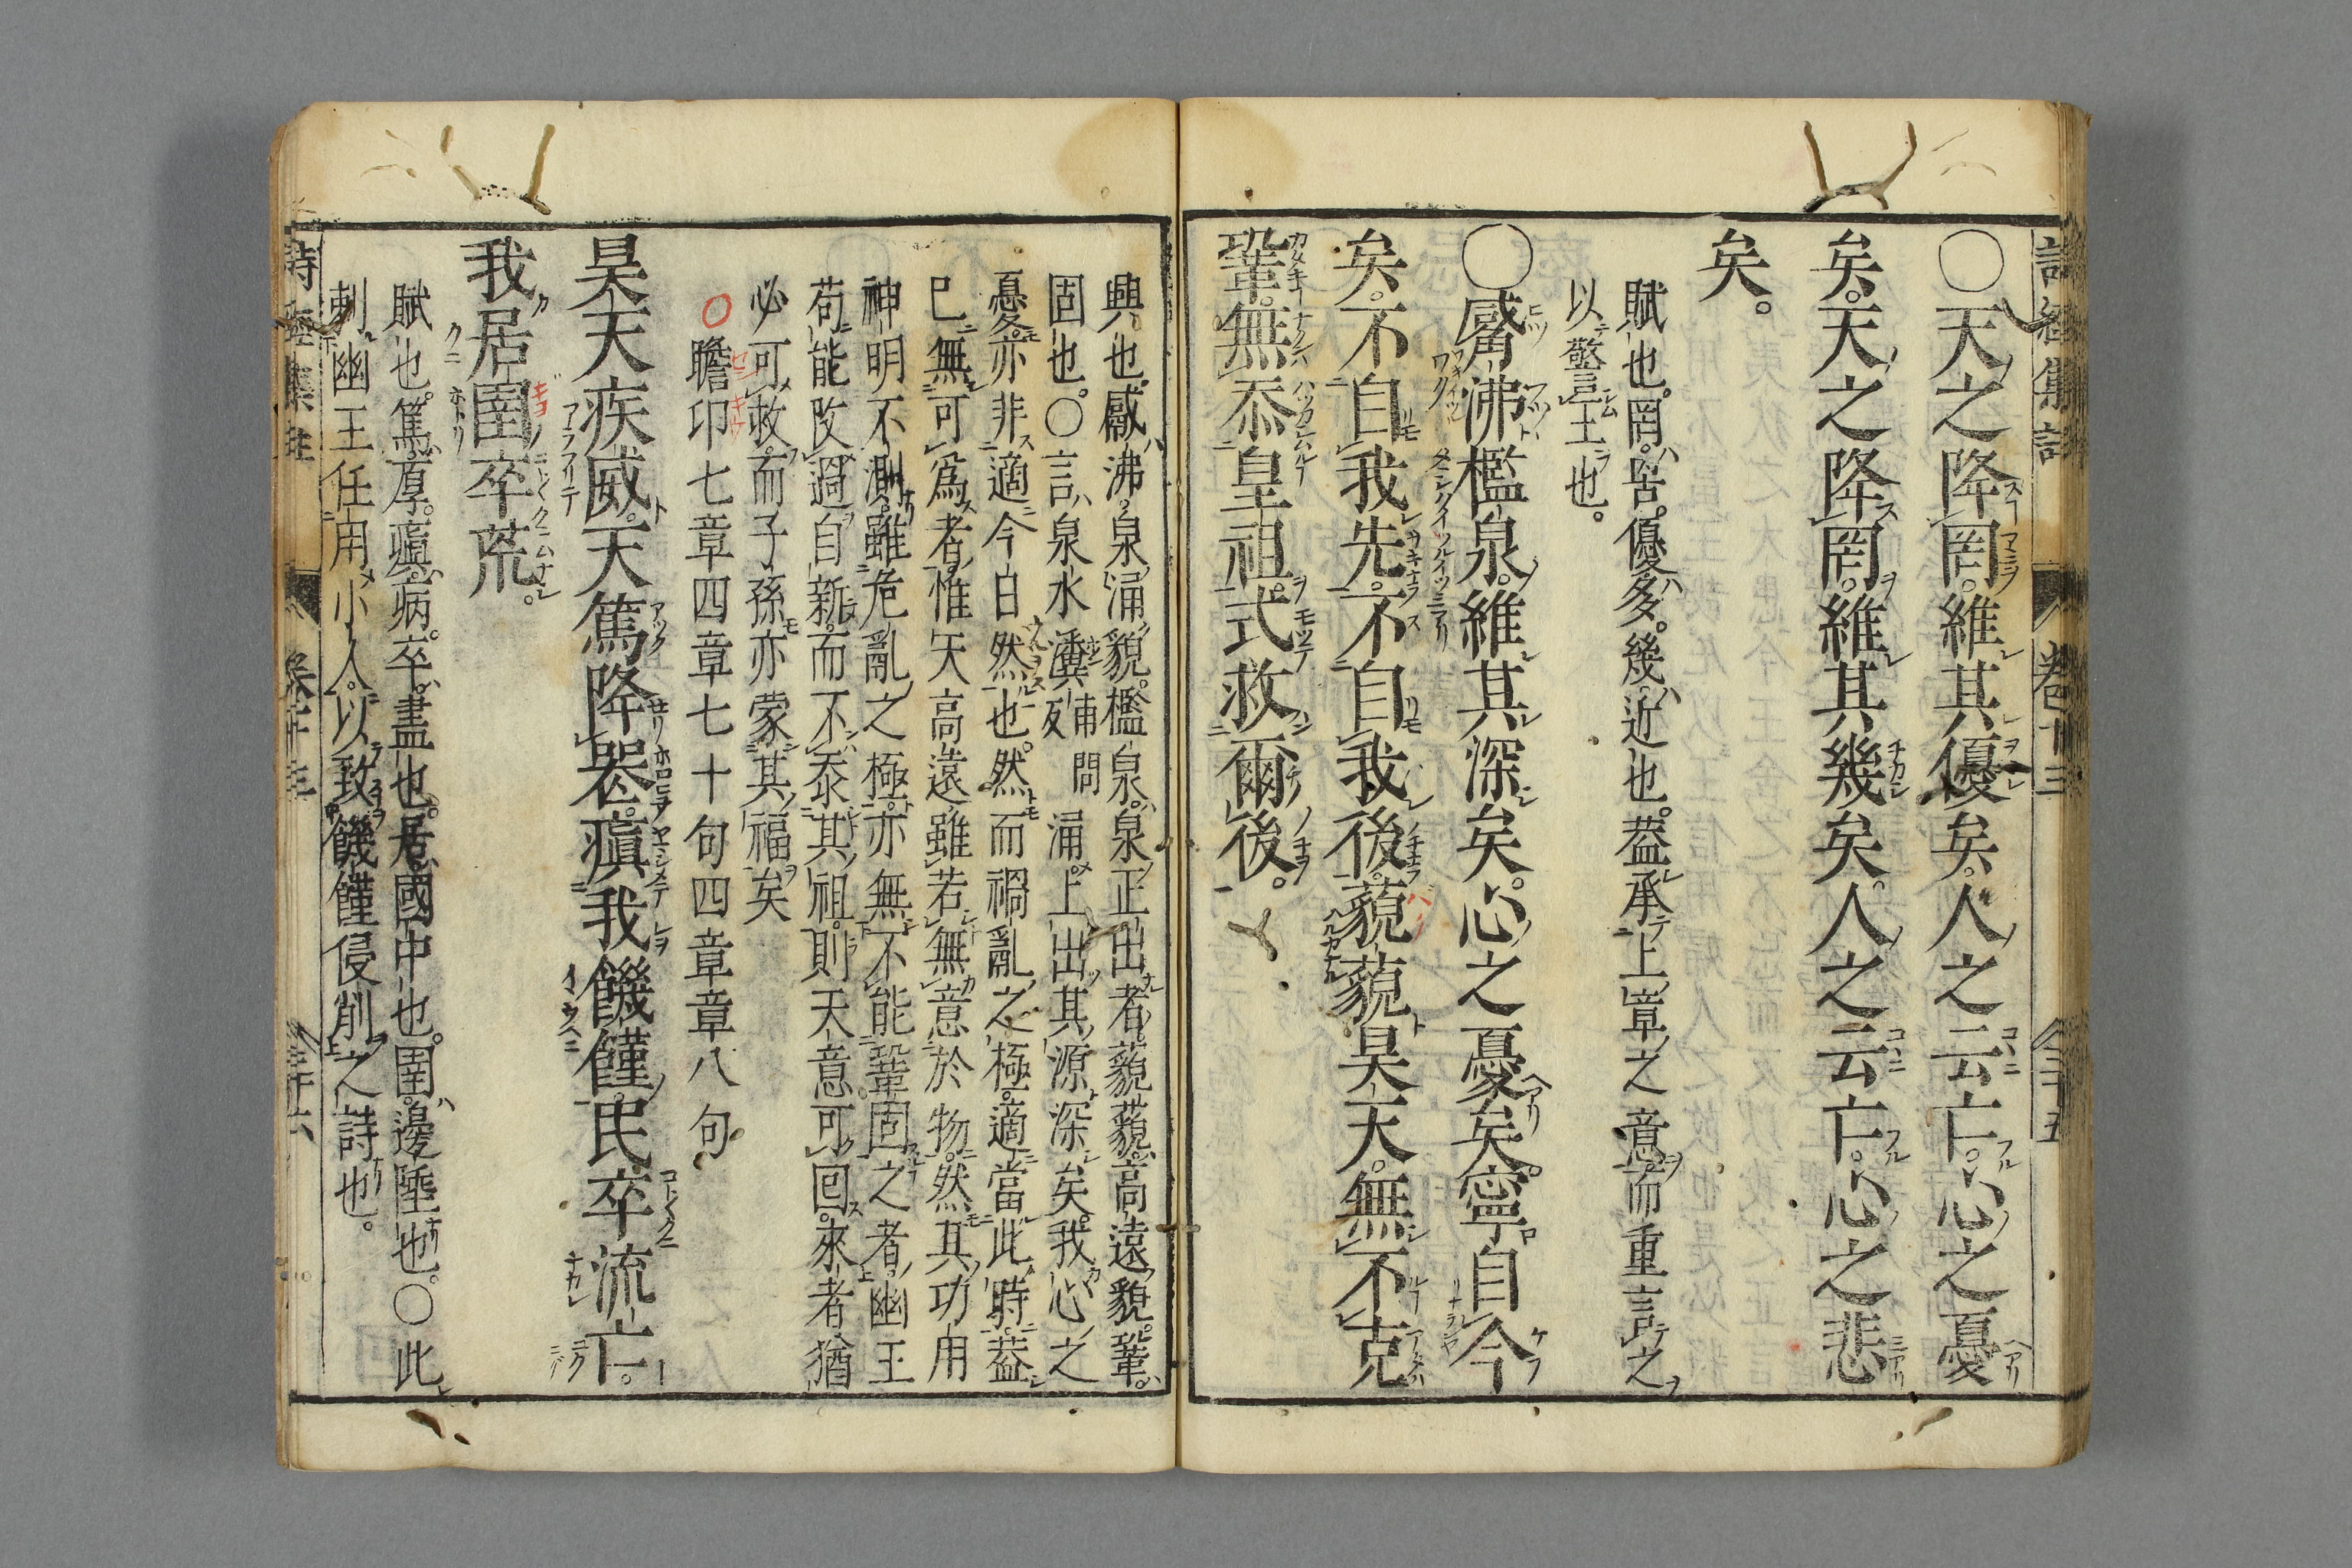 詩經集註 卷十三 三十五
〇天之降罔。維其優矣。人之云亡。心之憂
矣。天之降罔。維其幾矣。人之云亡。心之悲
矣。
賦也。罔。罟。優。多。幾。近也。葢承上章之意。而重言之
以警王也。
〇觱沸檻泉。維其深矣。心之憂矣。寧自今
矣。不自我先。不自我後。藐藐昊天。無不克
鞏。無忝皇祖。式救爾後。
興也。觱沸。泉涌貌。檻泉。泉正出者。藐藐。高遠貌。鞏。
固也。〇言泉水瀵甫問反涌上出。其源深矣。我心之
憂。亦非適今日然也。然而禍亂之極。適當此時。葢
已無可爲者。惟天高遠。雖若無意於物。然其功用
神明不測。雖危亂之極。亦無不能鞏固之者。幽王
苟能改過自新。而不忝其祖。則天意可回。來者猶
必可救。而子孫亦蒙其福矣
〇瞻卬七章四章七十句四章章八句
昊天疾威。天篤降喪。瘨我饑饉。民卒流亡。
我居圉卒荒。
賦也。篤。厚。瘨。病。卒。盡也。居。國中也。圉。邊陲也。〇此
刺幽王任用小人。以致饑饉侵削之詩也。
詩經集註